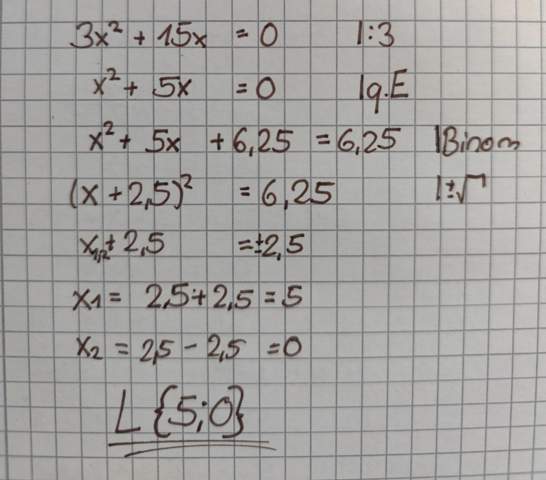 3x² + 15x = 0 |:3
x² + 5x = 0 |q.E
x² + 5x + 6,25 = 6,25 |Binom
(x + 2,5)² = 6,25 |±√
x₁,₂ + 2,5 = ±2,5
x₁ = 2,5 + 2,5 = 5
x₂ = 2,5 − 2,5 = 0
L {5;0}